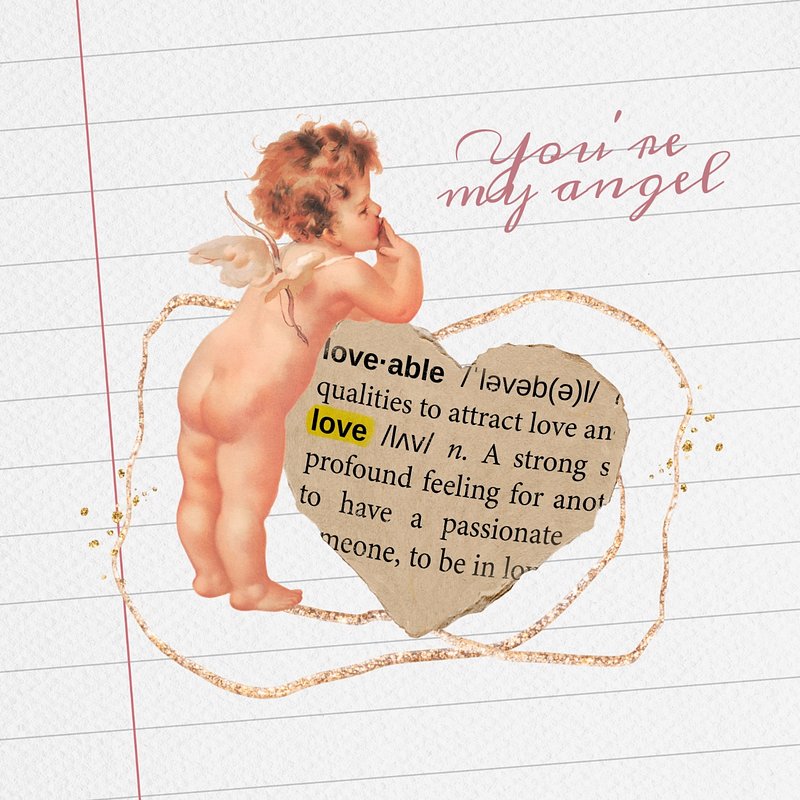 You're
my angel
love·able /ˈləvəb(ə)l/
qualities to attract love an
love /lʌv/ n. A strong s
profound feeling for anot
to have a passionate
meone, to be in lov